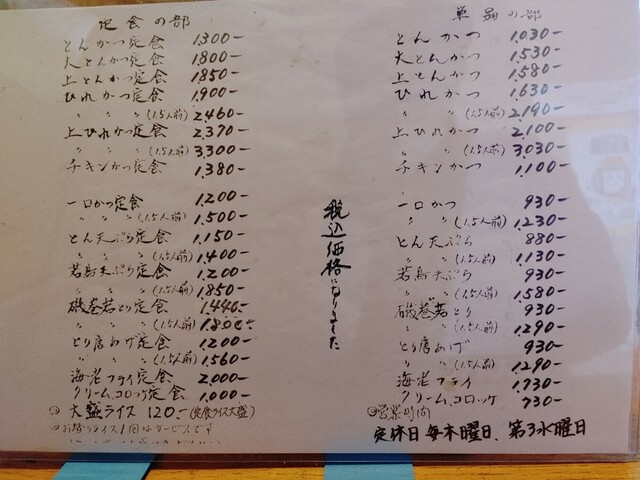 定食の部
とんかつ定食 1,300-
大とんかつ定食 1,800-
上とんかつ定食 1,850-
ひれかつ定食 1,900-
〃 〃 (1.5人前) 2,460-
上ひれかつ定食 2,370-
〃 〃 (1.5人前) 3,300-
チキンかつ定食 1,380-
一口かつ定食 1,200-
〃 〃 (1.5人前) 1,500-
とん天ぷら定食 1,150-
〃 〃 (1.5人前) 1,400-
若鳥天ぷら定食 1,200-
〃 〃 (1.5人前) 1,850-
磯巻若とり定食 1,440-
〃 〃 (1.5人前) 1,800-
とり唐あげ定食 1,200-
〃 〃 (1.5人前) 1,560-
海老フライ定食 2,000-
クリームコロッケ定食 1,000-
大盛ライス 120- (定食ライス大盛)
ライス1回はサービスです
税込価格になりました
単品の部
とんかつ 1,030-
大とんかつ 1,530-
上とんかつ 1,580-
ひれかつ 1,630-
〃 〃 (1.5人前) 2,190-
上ひれかつ 2,100-
〃 〃 (1.5人前) 3,030-
チキンかつ 1,100-
一口かつ 930-
〃 〃 (1.5人前) 1,230-
とん天ぷら 880-
〃 〃 (1.5人前) 1,130-
若鳥天ぷら 930-
〃 〃 (1.5人前) 1,580-
磯巻若とり 930-
〃 〃 (1.5人前) 1,290-
とり唐あげ 930-
〃 〃 (1.5人前) 1,290-
海老フライ 1,730-
クリームコロッケ 730-
営業時間
定休日 毎木曜日、第3水曜日